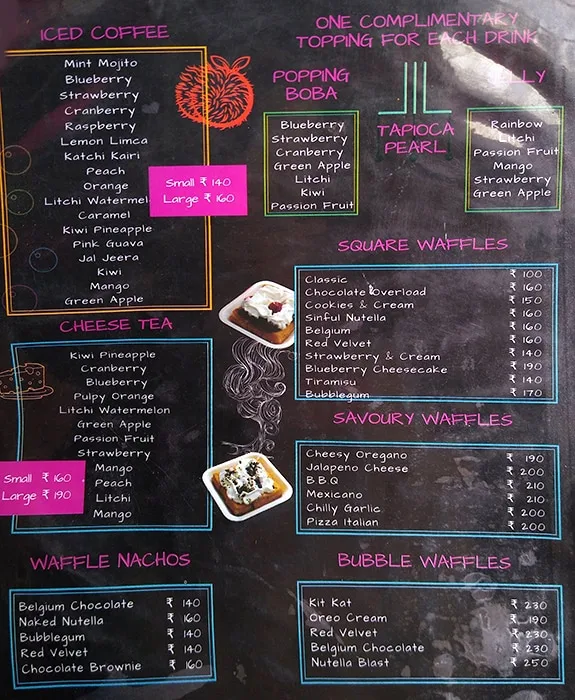 ICED COFFEE
Mint Mojito
Blueberry
Strawberry
Cranberry
Raspberry
Lemon Limca
Katchi Kairi
Peach
Orange
Litchi Watermel
Caramel
Kiwi Pineapple
Pink Guava
Jal Jeera
Kiwi
Mango
Green Apple
Small ₹ 140
Large ₹ 160
ONE COMPLIMENTARY
TOPPING FOR EACH DRINK
POPPING
BOBA
Blueberry
Strawberry
Cranberry
Green Apple
Litchi
Kiwi
Passion Fruit
TAPIOCA
PEARL
LLY
Rainbow
Litchi
Passion Fruit
Mango
Strawberry
Green Apple
CHEESE TEA
Kiwi Pineapple
Cranberry
Blueberry
Pulpy Orange
Litchi Watermelon
Green Apple
Passion Fruit
Strawberry
Mango
Peach
Litchi
Mango
Small ₹ 160
Large ₹ 190
SQUARE WAFFLES
Classic ₹ 100
Chocolate Overload ₹ 160
Cookies & Cream ₹ 150
Sinful Nutella ₹ 160
Belgium ₹ 160
Red Velvet ₹ 160
Strawberry & Cream ₹ 140
Blueberry Cheesecake ₹ 190
Tiramisu ₹ 140
Bubblegum ₹ 170
SAVOURY WAFFLES
Cheesy Oregano ₹ 190
Jalapeno Cheese ₹ 200
B.B.Q ₹ 210
Mexicano ₹ 210
Chilly Garlic ₹ 200
Pizza Italian ₹ 200
WAFFLE NACHOS
Belgium Chocolate ₹ 140
Naked Nutella ₹ 160
Bubblegum ₹ 140
Red Velvet ₹ 140
Chocolate Brownie ₹ 160
BUBBLE WAFFLES
Kit Kat ₹ 230
Oreo Cream ₹ 190
Red Velvet ₹ 230
Belgium Chocolate ₹ 230
Nutella Blast ₹ 250